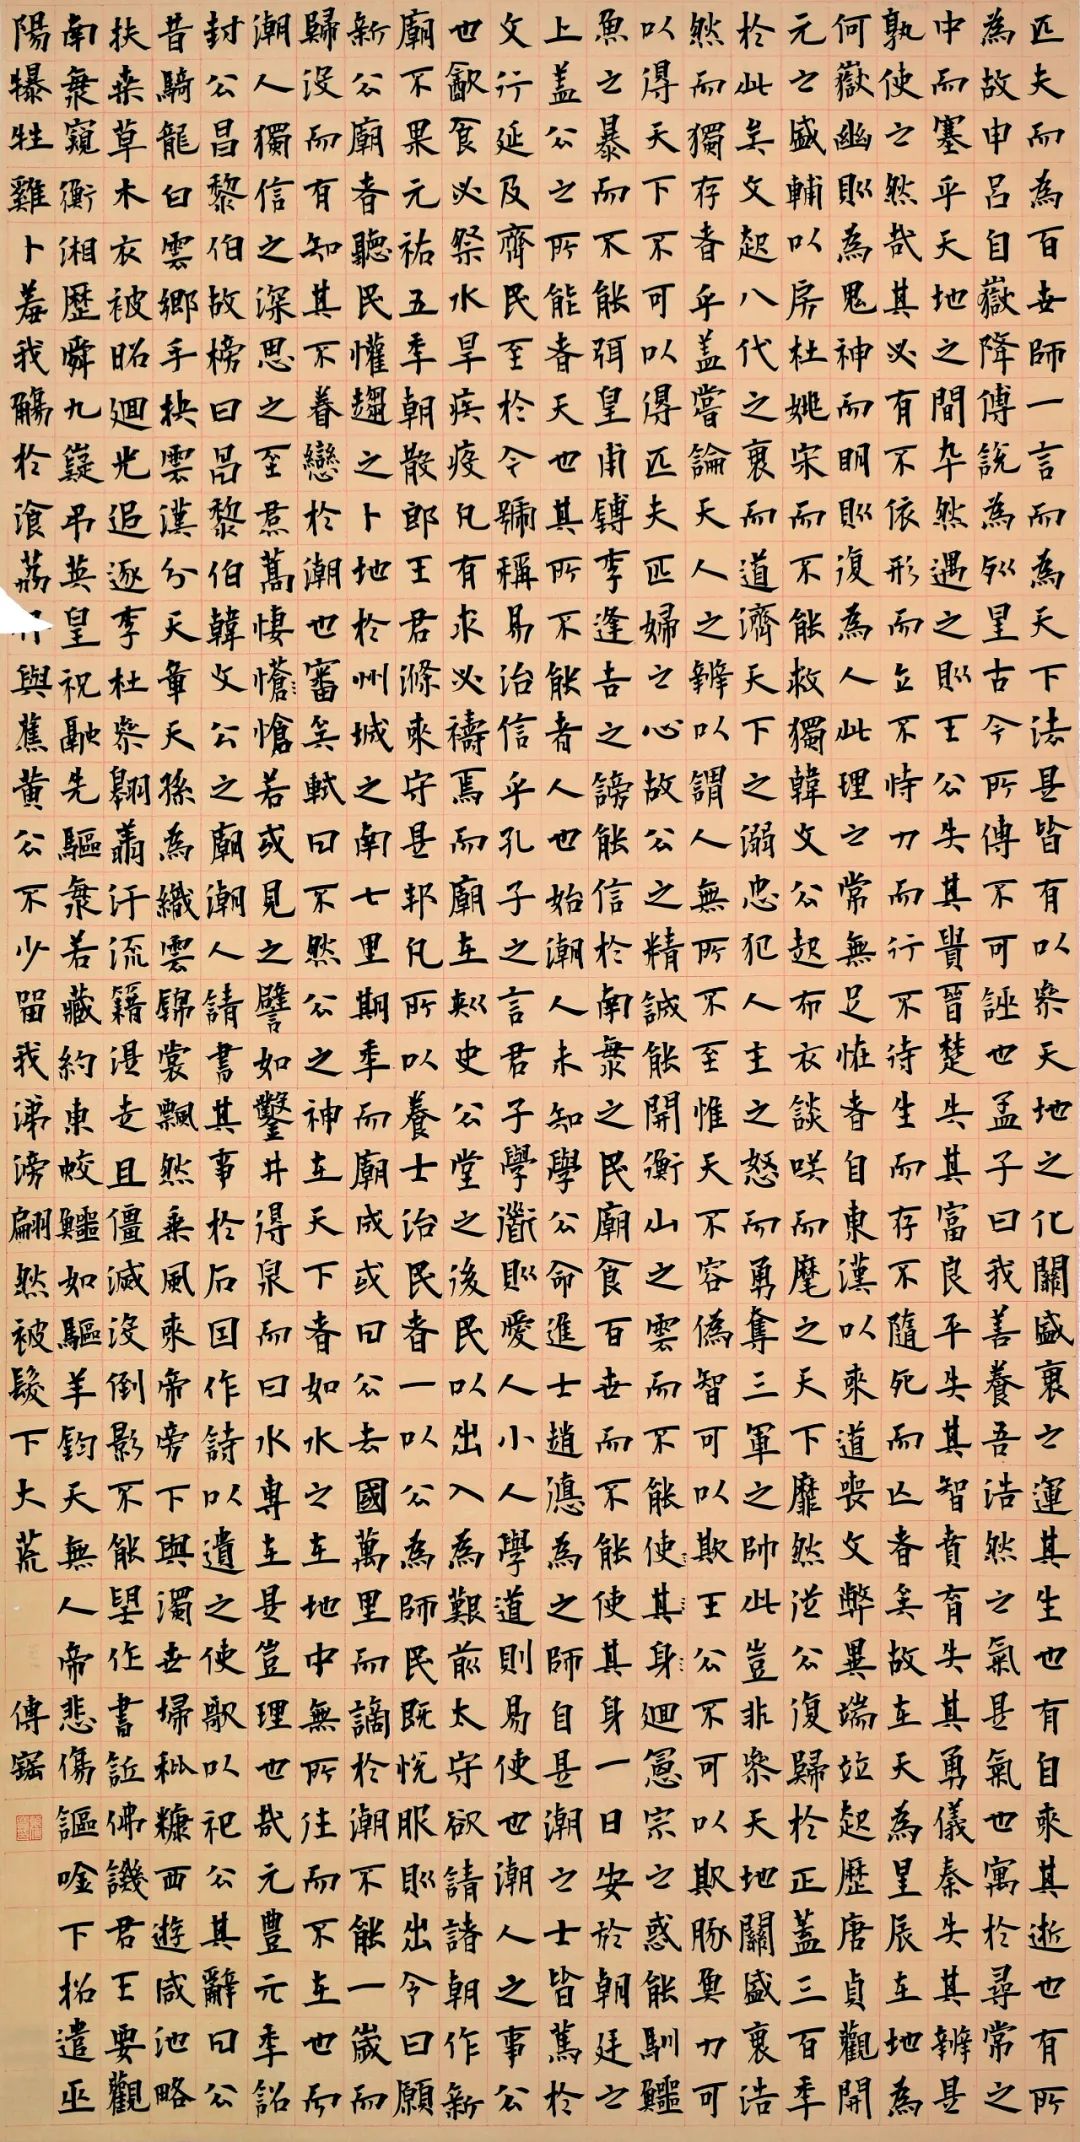 匹夫而為百世師一言而為天下法是皆有以參天地之化關盛衰之運其生也有自來其逝也有所
為故申呂自嶽降傅說為列星古今所傳不可誣也孟子曰我善養吾浩然之氣是氣也寓於尋常之
中而塞乎天地之間卒然遇之則王公失其貴晉楚失其富良平失其智賁育失其勇儀秦失其辨是
孰使之然哉其必有不依形而立不恃力而行不待生而存不隨死而亡者矣故在天為星辰在地為
何嶽幽則為鬼神而明則復為人此理之常無足怪者自東漢以來道喪文弊異端竝起歷唐貞觀開
元之盛輔以房杜姚宋而不能救獨韓文公起布衣談咲而麾之天下靡然從公復歸於正蓋三百年
於此矣文起八代之衰而道濟天下之溺忠犯人主之怒而勇奪三軍之帥此豈非參天地關盛衰浩
然而獨存者乎蓋嘗論天人之辨以謂人無所不至惟天不容偽智可以欺王公不可以欺豚魚力可
以得天下不可以得匹夫匹婦之心故公之精誠能開衡山之雲而不能使其身迴憲宗之惑能馴鱷
魚之暴而不能弭皇甫鎛李逢吉之謗能信於南衆之民廟食百世而不能使其身一日安於朝廷之
上蓋公之所能者天也其所不能者人也始潮人未知學公命進士趙德為之師自是潮之士皆篤於
文行延及齊民至於今號稱易治信乎孔子之言君子學道則愛人小人學道則易使也潮人之事公
也飲食必祭水旱疾疫凡有求必禱焉而廟在刺史公堂之後民以出入為艱前太守欲請諸朝作新
廟不果元祐五年朝散郎王君滌來守是邦凡所以養士治民者一以公為師民既悅服則出令曰願
新公廟者聽民懽趨之卜地於州城之南七里期年而廟成或曰公去國萬里而謫於潮不能一歲而
歸沒而有知其不眷戀於潮也審矣軾曰不然公之神在天下者如水之在地中無所往而不在也而
潮人獨信之深思之至焄蒿悽愴愴若或見之譬如鑿井得泉而曰水專在是豈理也哉元豐元年詔
封公昌黎伯故榜曰昌黎伯韓文公之廟潮人請書其事於石因作詩以遺之使歌以祀公其辭曰公
昔騎龍白雲鄉手抉雲漢分天章天孫為織雲錦裳飄然乘風來帝旁下與濁世掃秕糠西遊咸池略
扶桑草木衣被昭迴光追逐李杜參翱翔汗流籍湜走且僵滅沒倒影不能望作書詆佛譏君王要觀
南衆窺衡湘歷舜九嶷弔英皇祝融先驅衆若藏約束蛟鱷如驅羊鈞天無人帝悲傷謳唫下招遣巫
陽犦牲雞卜羞我觴於湌荔與蕉黃公不少留我涕滂翩然被髮下大荒
傅